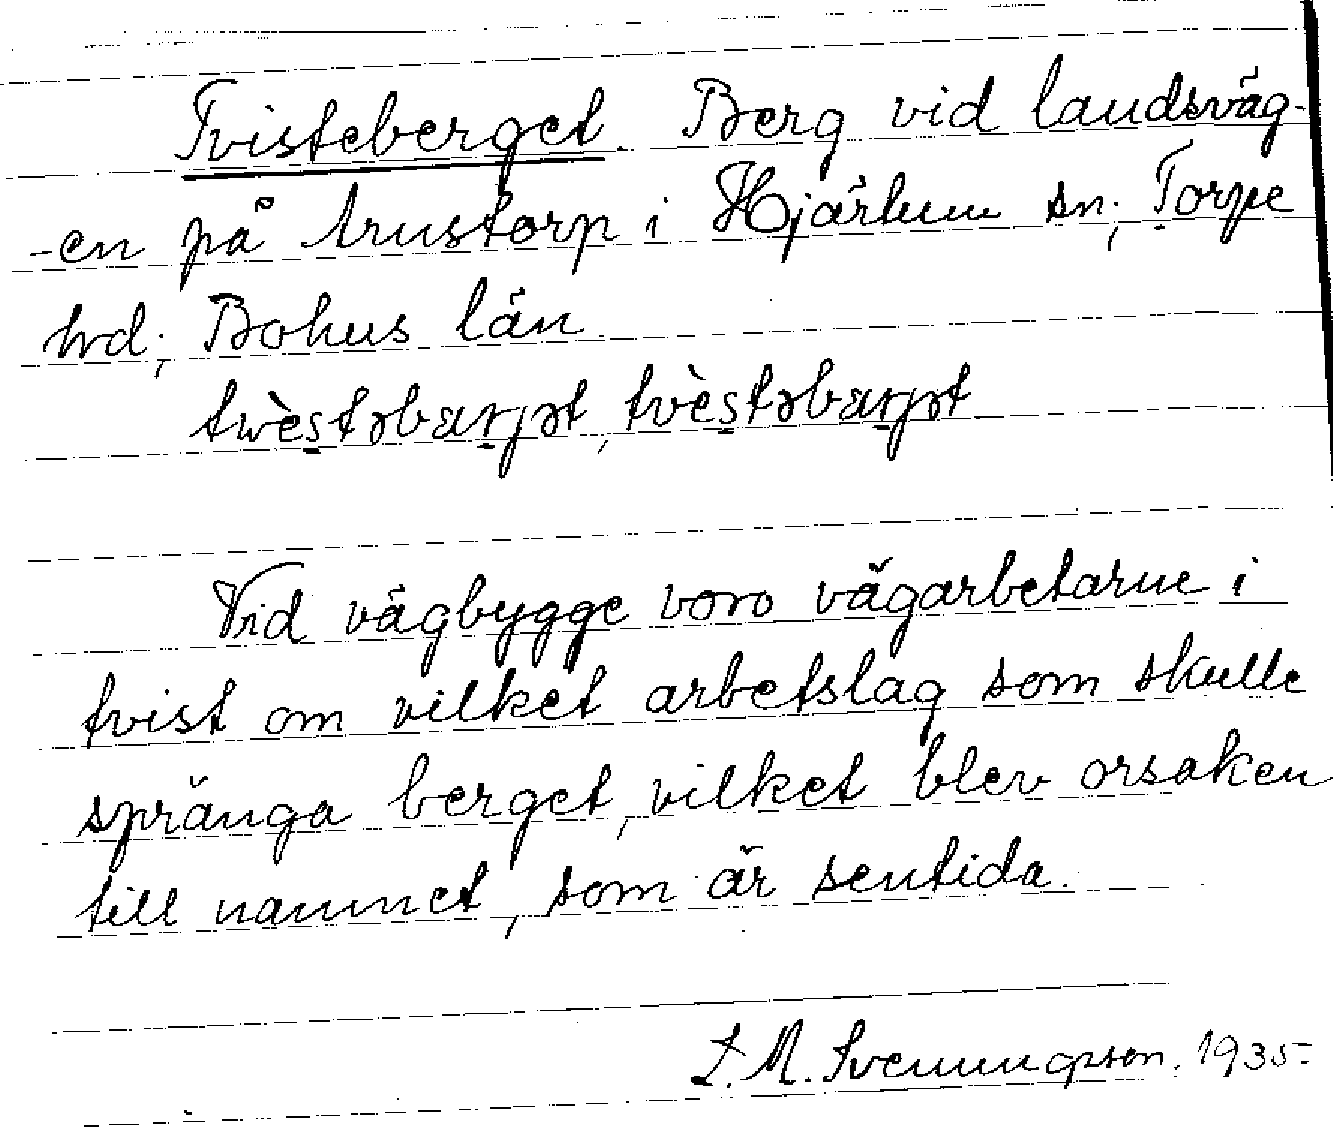 Tvisteberget. Berg vid landsväg-
-en på Arustorp i Hjärtum sn; Torpe
hrd; Bohus län.
twès̠tɔbær̠jɔt, tvès̠tɔbær̠jɔt
Vid vägbygge voro vägarbetarne i
tvist om vilket arbetslag som skulle
spränga berget, vilket blev orsaken
till namnet, som är sentida.
L. M. Svenungsson. 1935.